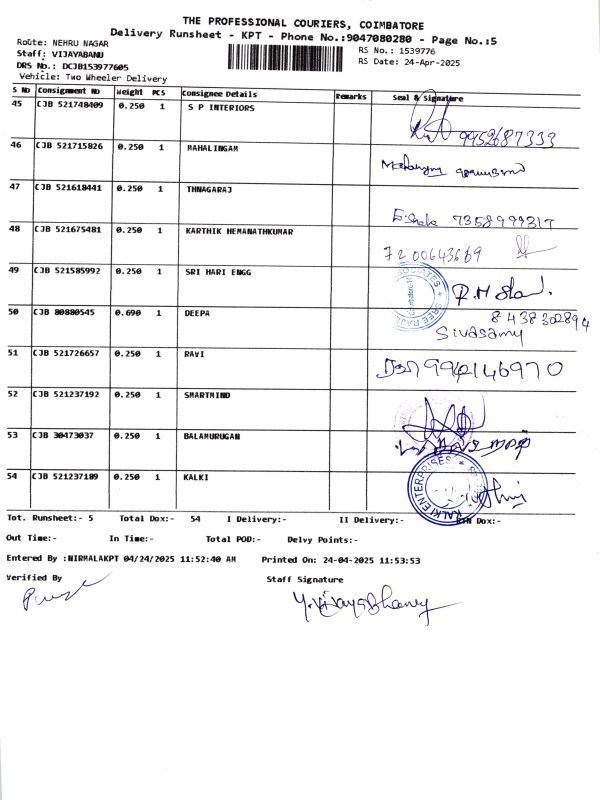 THE PROFESSIONAL COURIERS, COIMBATORE
Delivery Runsheet - KPT - Phone No.:9047080280 - Page No.:5
Route: NEHRU NAGAR
RS No.: 1539776
Staff: VIJAYABANU
RS Date: 24-Apr-2025
DRS No.: DCJB153977605
Vehicle: Two Wheeler Delivery
S No Consignment No Weight PCS Consignee Details Remarks Seal & Signature
45 CJB 521748409 0.250 1 S P INTERIORS 9952687333
46 CJB 521715826 0.250 1 MAHALINGAM
47 CJB 521618441 0.250 1 THNAGARAJ 7358999317
48 CJB 521675481 0.250 1 KARTHIK HEMANATHKUMAR 7200643669
49 CJB 521585992 0.250 1 SRI HARI ENGG
50 CJB 80880545 0.690 1 DEEPA 8438302894
Sivasamy
51 CJB 521726657 0.250 1 RAVI
52 CJB 521237192 0.250 1 SMARTMIND
53 CJB 30473037 0.250 1 BALAMURUGAN
54 CJB 521237189 0.250 1 KALKI KALKI ENTERPRISES
Tot. Runsheet:- 5 Total Dox:- 54 I Delivery:- II Delivery:- RTN Dox:-
Out Time:- In Time:- Total POD:- Delvy Points:-
Entered By :NIRMALAKPT 04/24/2025 11:52:40 AM Printed On: 24-04-2025 11:53:53
Verified By Staff Signature
Y.VijayaBhanu